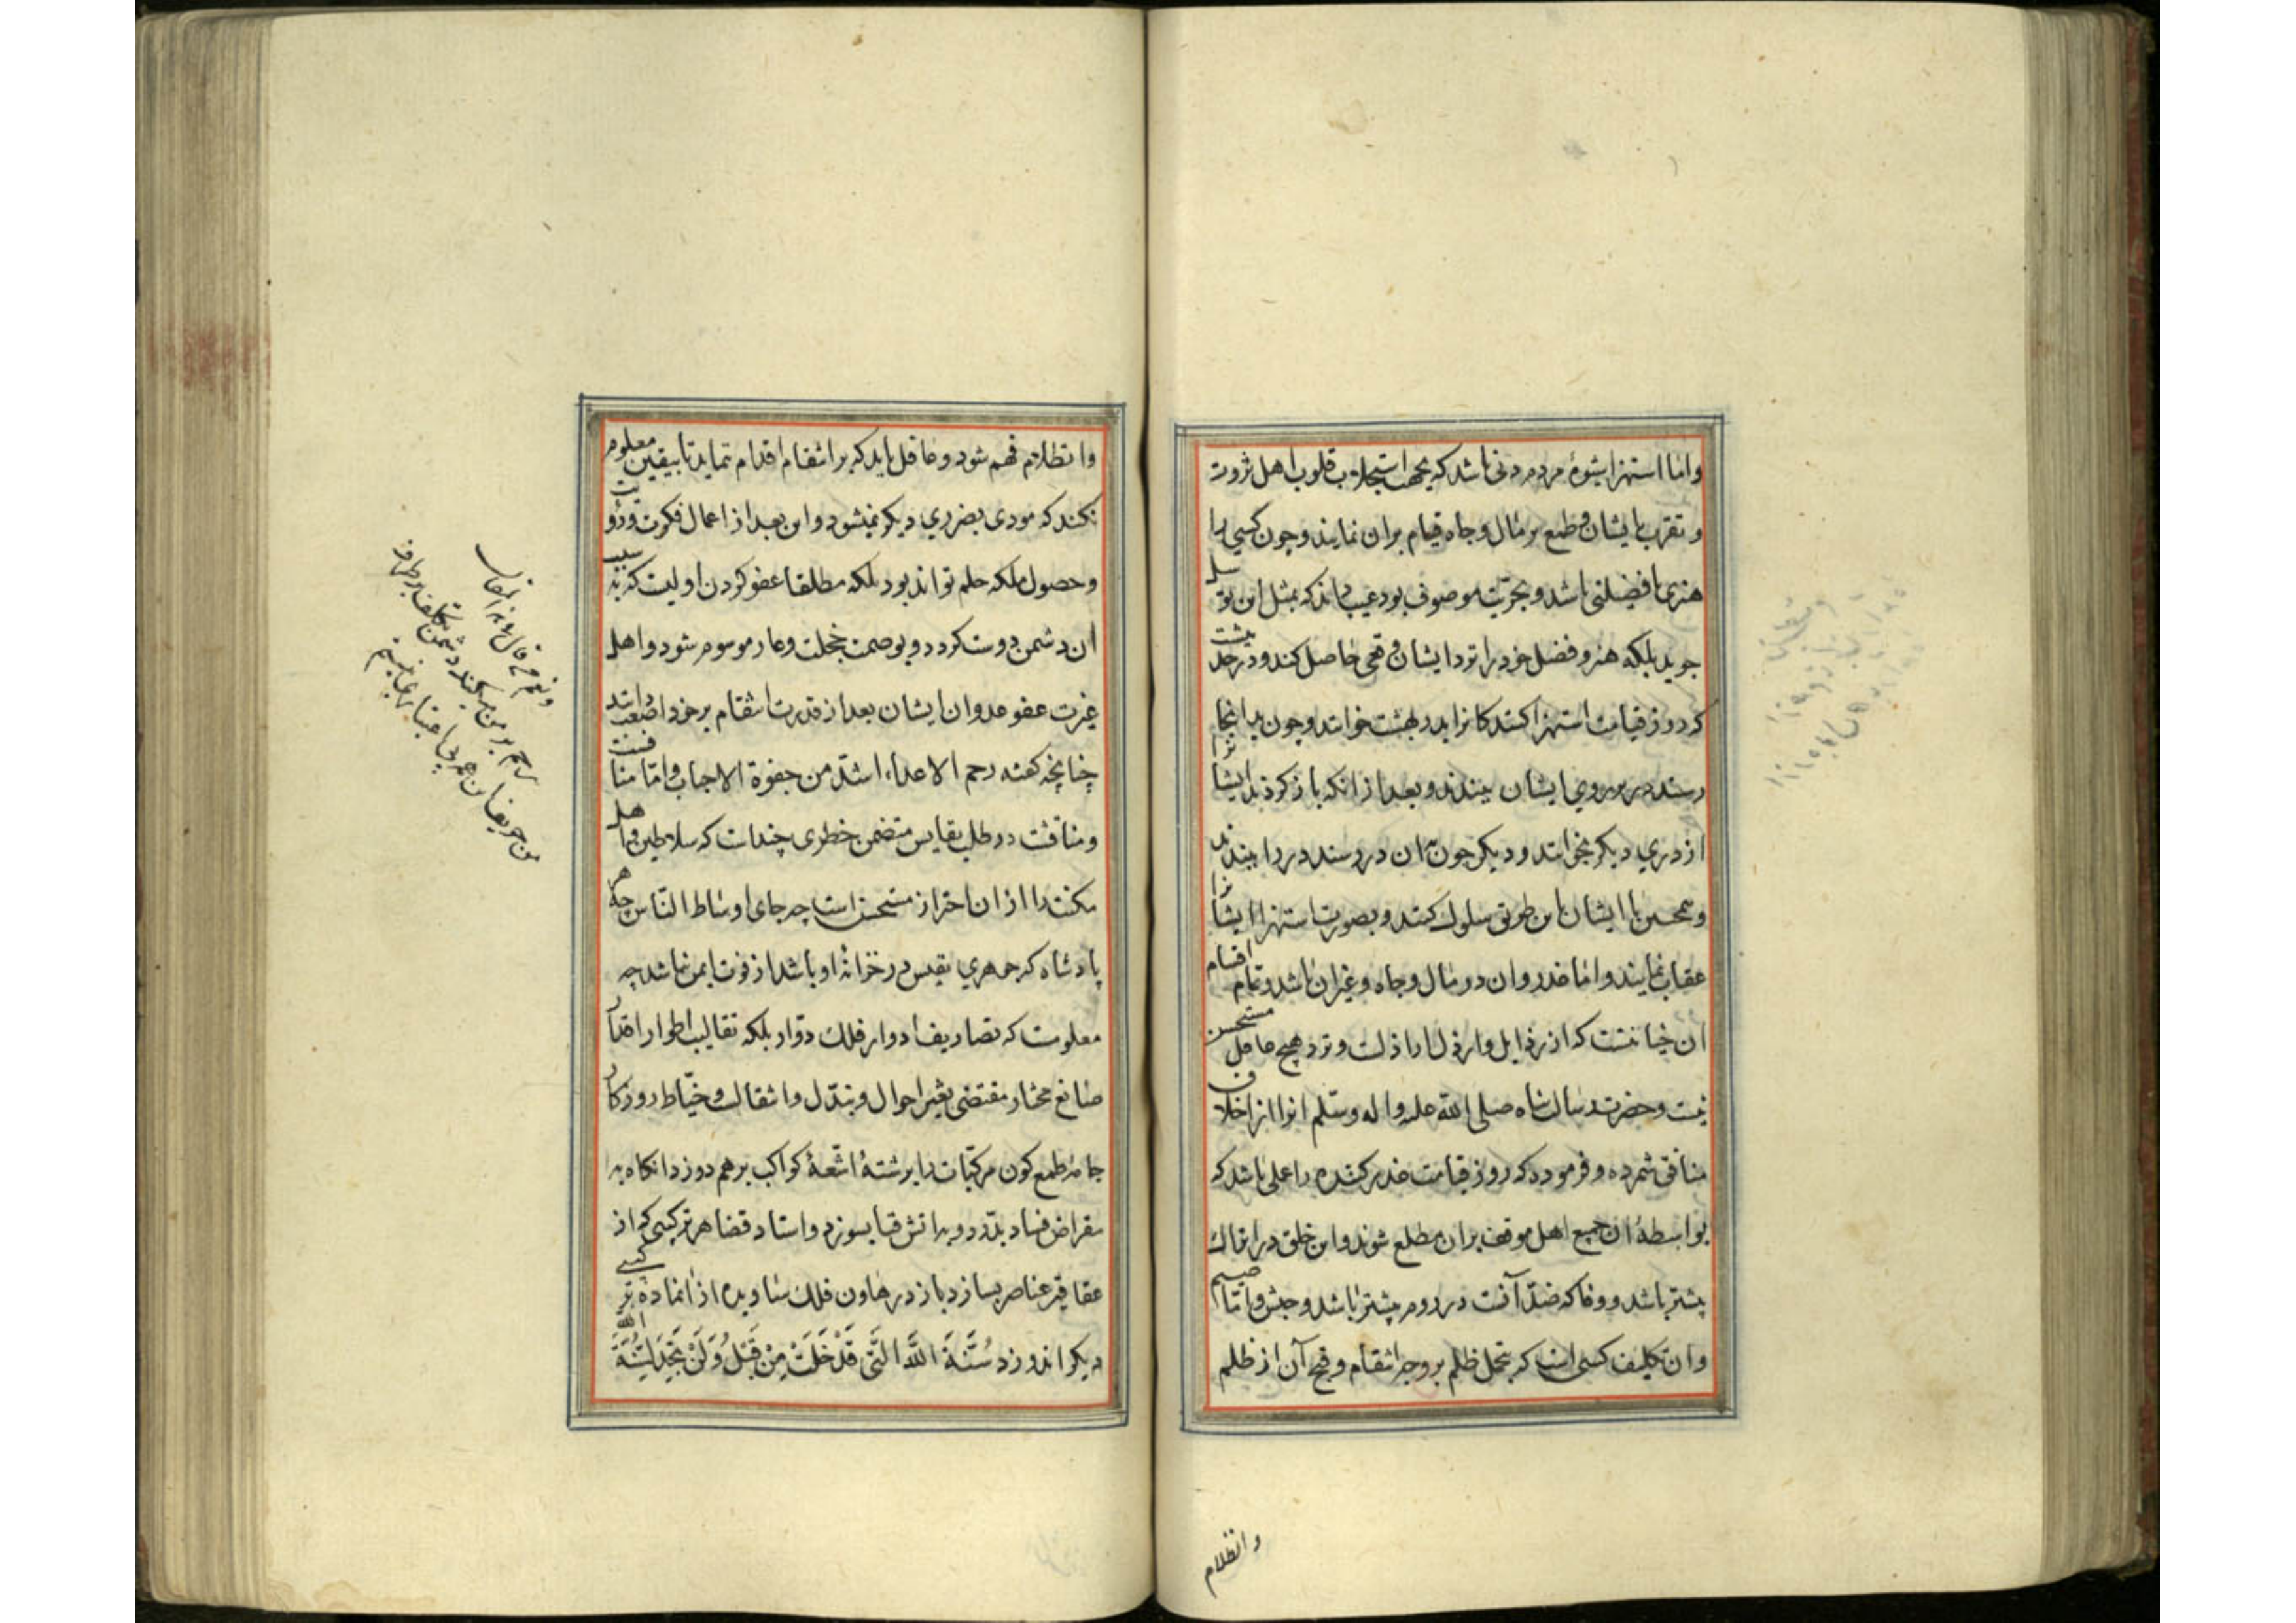 واما استهزا شیوهٔ مردم دنی باشد که بجهت استجلاب قلوب اهل ثروت
و تقرب بایشان و طمع بر مال و جاه قیام بران نمایند و چون کسی را
هنری یا فضیلتی باشد و بحریت موصوف بود عیب داند که بمثل این توسل
جوید بلکه هنر و فضل خود را نزد ایشان وقعی حاصل کند و در حدیث
کردوز قیامت استهزا کنندکانرا بدر بهشت خوانند و چون بدانجا
رسند در بر روی ایشان ببندند و بعد از انکه باز کردند ایشانرا
از دری دیکر بخوانند و دیکر چون بان در رسند در را ببندند
و همچنین با ایشان باین طریق سلوک کنند و بصورت استهزا ایشانرا
عقاب نمایند و اما غدر و ان در مال و جاه و غیران باشد و تمام اقسام
ان خیانتست که از رذایل و ارذل اراذلست و نزد هیچ عاقل مستحسن
نیست و حضرت رسالت پناه صلی الله علیه واله وسلم انرا از اخلاق
منافق شمرده و فرموده که روز قیامت غدر کننده را علمی باشد که
بواسطهٔ ان جمیع اهل موقف بران مطلع شوند و این خلق در اتراک
بیشتر باشد و وفا که ضد آنست در روم بیشتر باشد و حبش و اما ضیم
و ان تکلیف کسی است که بتحمل ظلم بر وجه انتقام و قبح آن از ظلم
وانظلام
وانظلام فهم شود و عاقل باید که بر انتقام اقدام ننماید تا بیقین معلوم
نکند که مودی بضرری دیکر نمیشود و این بعد از اعمال فکرت و رویت
و حصول ملکه حلم تواند بود بلکه مطلقا عفو کردن اولیست که بسبب
ان دشمن دوست کردد و بوصمت خجلت و عار موسوم شود و اهل
غیرت عفو عدو ان ایشان بعد از قدرت انتقام بر خود اصعب دانند
چنانچه کفته رحم الاعداء اشد من جفوة الاحباب و اما منافست
و منافست در طلب نفایس متضمن خطری چندست که سلاطین و اهل
مکنت را از ان احتراز مستحسن است چه جای اوساط الناس چه هر
پادشاه که جوهری نفیس در خزانهٔ او باشد از فوت ایمن نباشد چه
معلومست که تصاریف ادوار فلک دوار بلکه تقالیب اطوار اقدار
صانع مختار مقتضی تغیر احوال و تبدل و انتقالست و خیاط روزکار
جامهٔ طمع کون مرکبات را برشتهٔ اشعهٔ کواکب برهم دوزد انکاه به
مقراض فساد بدرد و به اتش فنا بسوزد و استاد قضا هر ترکیبی که از
عقاقیر عناصر بسازد باز در هاون فلک بساید و از ان ماده ترکیبی
دیکر اندوزد سُنَّةَ اللَّهِ الَّتِی قَدْ خَلَتْ مِنْ قَبْلُ وَلَنْ تَجِدَ لِسُنَّةِ الله